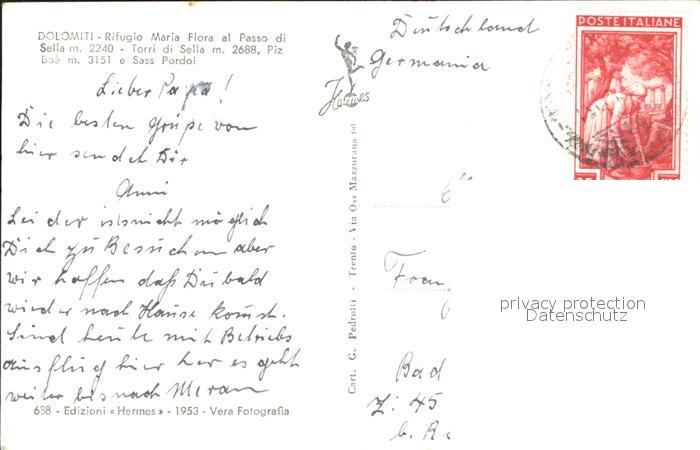 DOLOMITI - Rifugio Maria Flora al Passo di
Sella m. 2240 - Torri di Sella m. 2688, Piz
Boè m. 3151 e Sass Pordoi
Lieber Papa!
Die besten Grüße von
hier sendet Dir
Anni
Leider ists nicht möglich
Dich zu Besuchen aber
wir hoffen daß Du bald
wieder nach Hause kommst.
Sind heute mit Betriebs
ausflug hier her es geht
weiter bis nach Meran
638 - Edizioni «Hermes» - 1953 - Vera Fotografia
Hermes
Cart. G. Pedrotti - Trento - Via Oss Mazzurana
Deutschland
Germania
POSTE ITALIANE
Bad
Z: 45
privacy protection
Datenschutz